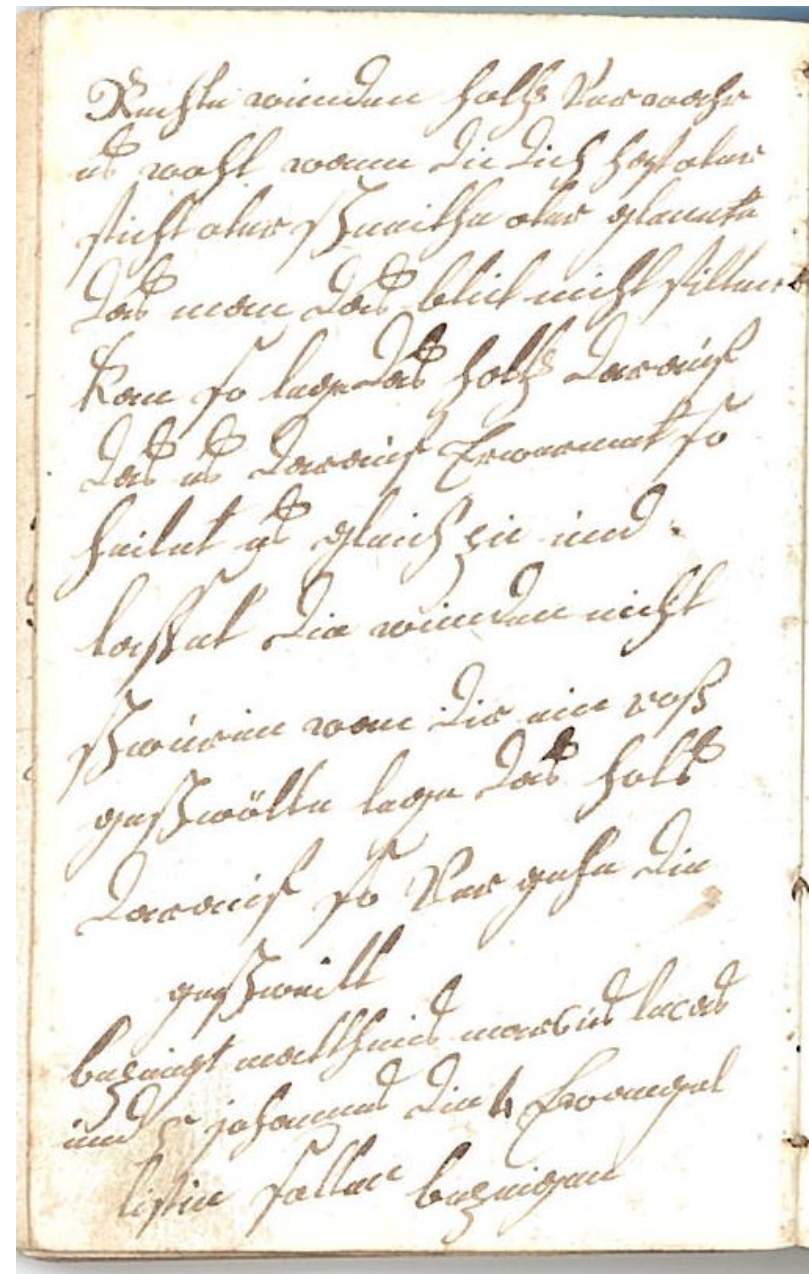 Rechte wunden holtz Verwahr
es wohl wenn du dich haust oder
stichst oder schneithe oder
das man das blut nicht stillen
kan so lege das holtz darauf
das es darauf Erwarmet so
heilet es gleich zu und
lasset die wunden nicht
schwürin wan dir ein roß
geschwölle lege das holtz
darauf so Vergehe die
geschwült
bezeugt mattheus marcus lucas
und johannes die 4 Ewangel
listin sollen bezeigen